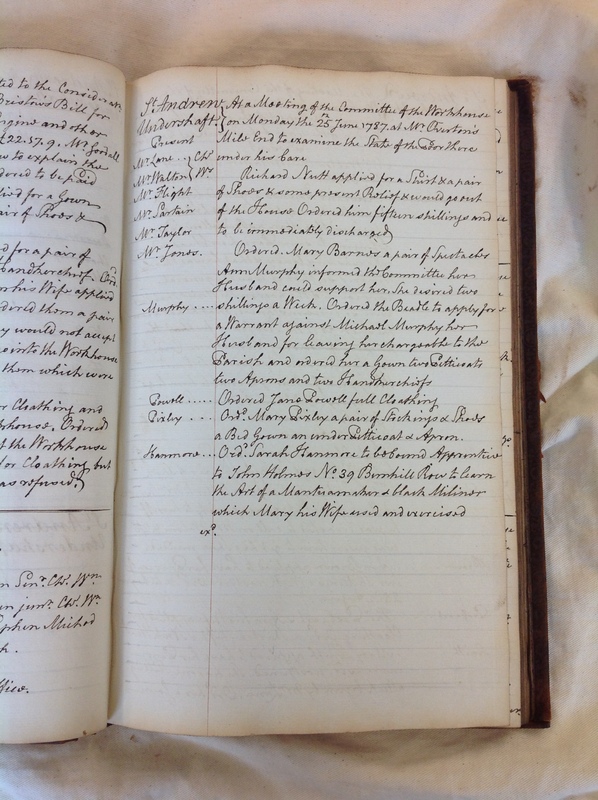 ted to the Considerat.
Bristow's Bill for
Engine and other
£22.37.9. Mr Goodall
to explain the
dered to be paid
lied for a Gown
air of Shoes &
d for a pair of
Handkerchief. Ord.
his Wife applied
dered them a pair
y would not accept
into the Workhouse
them which were
r Cloathing and
khouse, Ordered
t the Workhouse
for Cloathing but
as refused
n Senr. Chh. Wn.
n junr. Chh. Wn.
Stephen Michod
k.
ffice.
St. Andrew At a Meeting of the Committee of the Workhouse
Undershaft on Monday the 25th June 1787. at Mr. Overton's
Present Mile End to examine the State of the Poor there
Mr. Lane .. Chh. under his Care
Mr. Walton Wn. Richard Nutt applied for a Shirt & a pair
Mr. Flight of Shoes & some present Relief & would go out
Mr. Sartain of the House Ordered him fifteen shillings and
Mr. Taylor to be immediately discharged
Mr. Jones. Ordered. Mary Barnes a pair of Spectacles
Ann Murphy informed the Committee her
Husband could support her. She desired two
Murphy .... shillings a Week. Ordered the Beadle to apply for
a Warrant against Michael Murphy her
Husband for leaving her chargeable to the
Parish and ordered her a Gown two Petticoats
two Aprons and two Handkerchiefs
Powell ..... Ordered Jane Powell full Cloathing
Pixley .... Ordd. Mary Pixley a pair of Stockings & Shoes
a Bed Gown an under Petticoat & Apron.
Hanmore ... Ordd. Sarah Hanmore to be bound Apprentice
to John Holmes No. 39 Bunhill Row to learn
the Art of a Mantuamaker & black Miliner
which Mary his Wife used and exercised
exd.